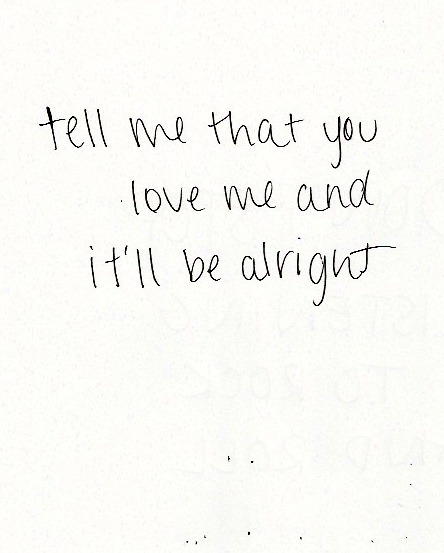 tell me that you
love me and
it'll be alright